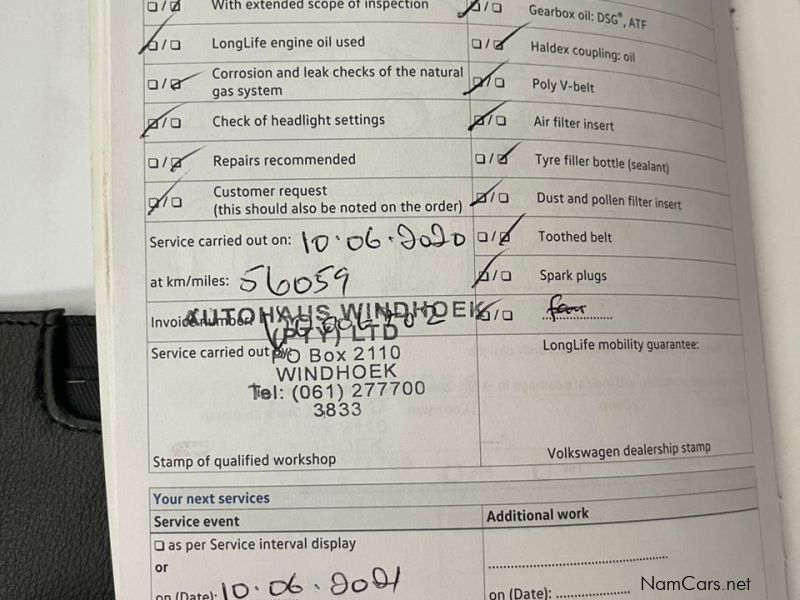 With extended scope of inspection
LongLife engine oil used
Corrosion and leak checks of the natural
gas system
Check of headlight settings
Repairs recommended
Customer request
(this should also be noted on the order)
Gearbox oil: DSG®, ATF
Haldex coupling: oil
Poly V-belt
Air filter insert
Tyre filler bottle (sealant)
Dust and pollen filter insert
Toothed belt
Spark plugs
Service carried out on: 10.06.2020
at km/miles: 56059
Invoice number:
Service carried out by:
AUTOHAUS WINDHOEK
(PTY) LTD
PO Box 2110
WINDHOEK
Tel: (061) 277700
3833
Stamp of qualified workshop
LongLife mobility guarantee:
Volkswagen dealership stamp
Your next services
Service event
Additional work
as per Service interval display
or
on (Date): 10.06.2021
on (Date):
NamCars.net